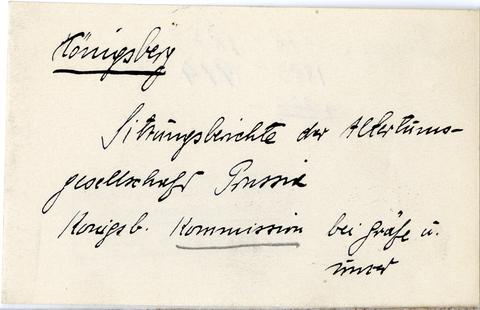 Königsberg
Sitzungsberichte der Altertums-
gesellschaft Prussia
Königsb. Kommission bei Gräfe u.
Unzer